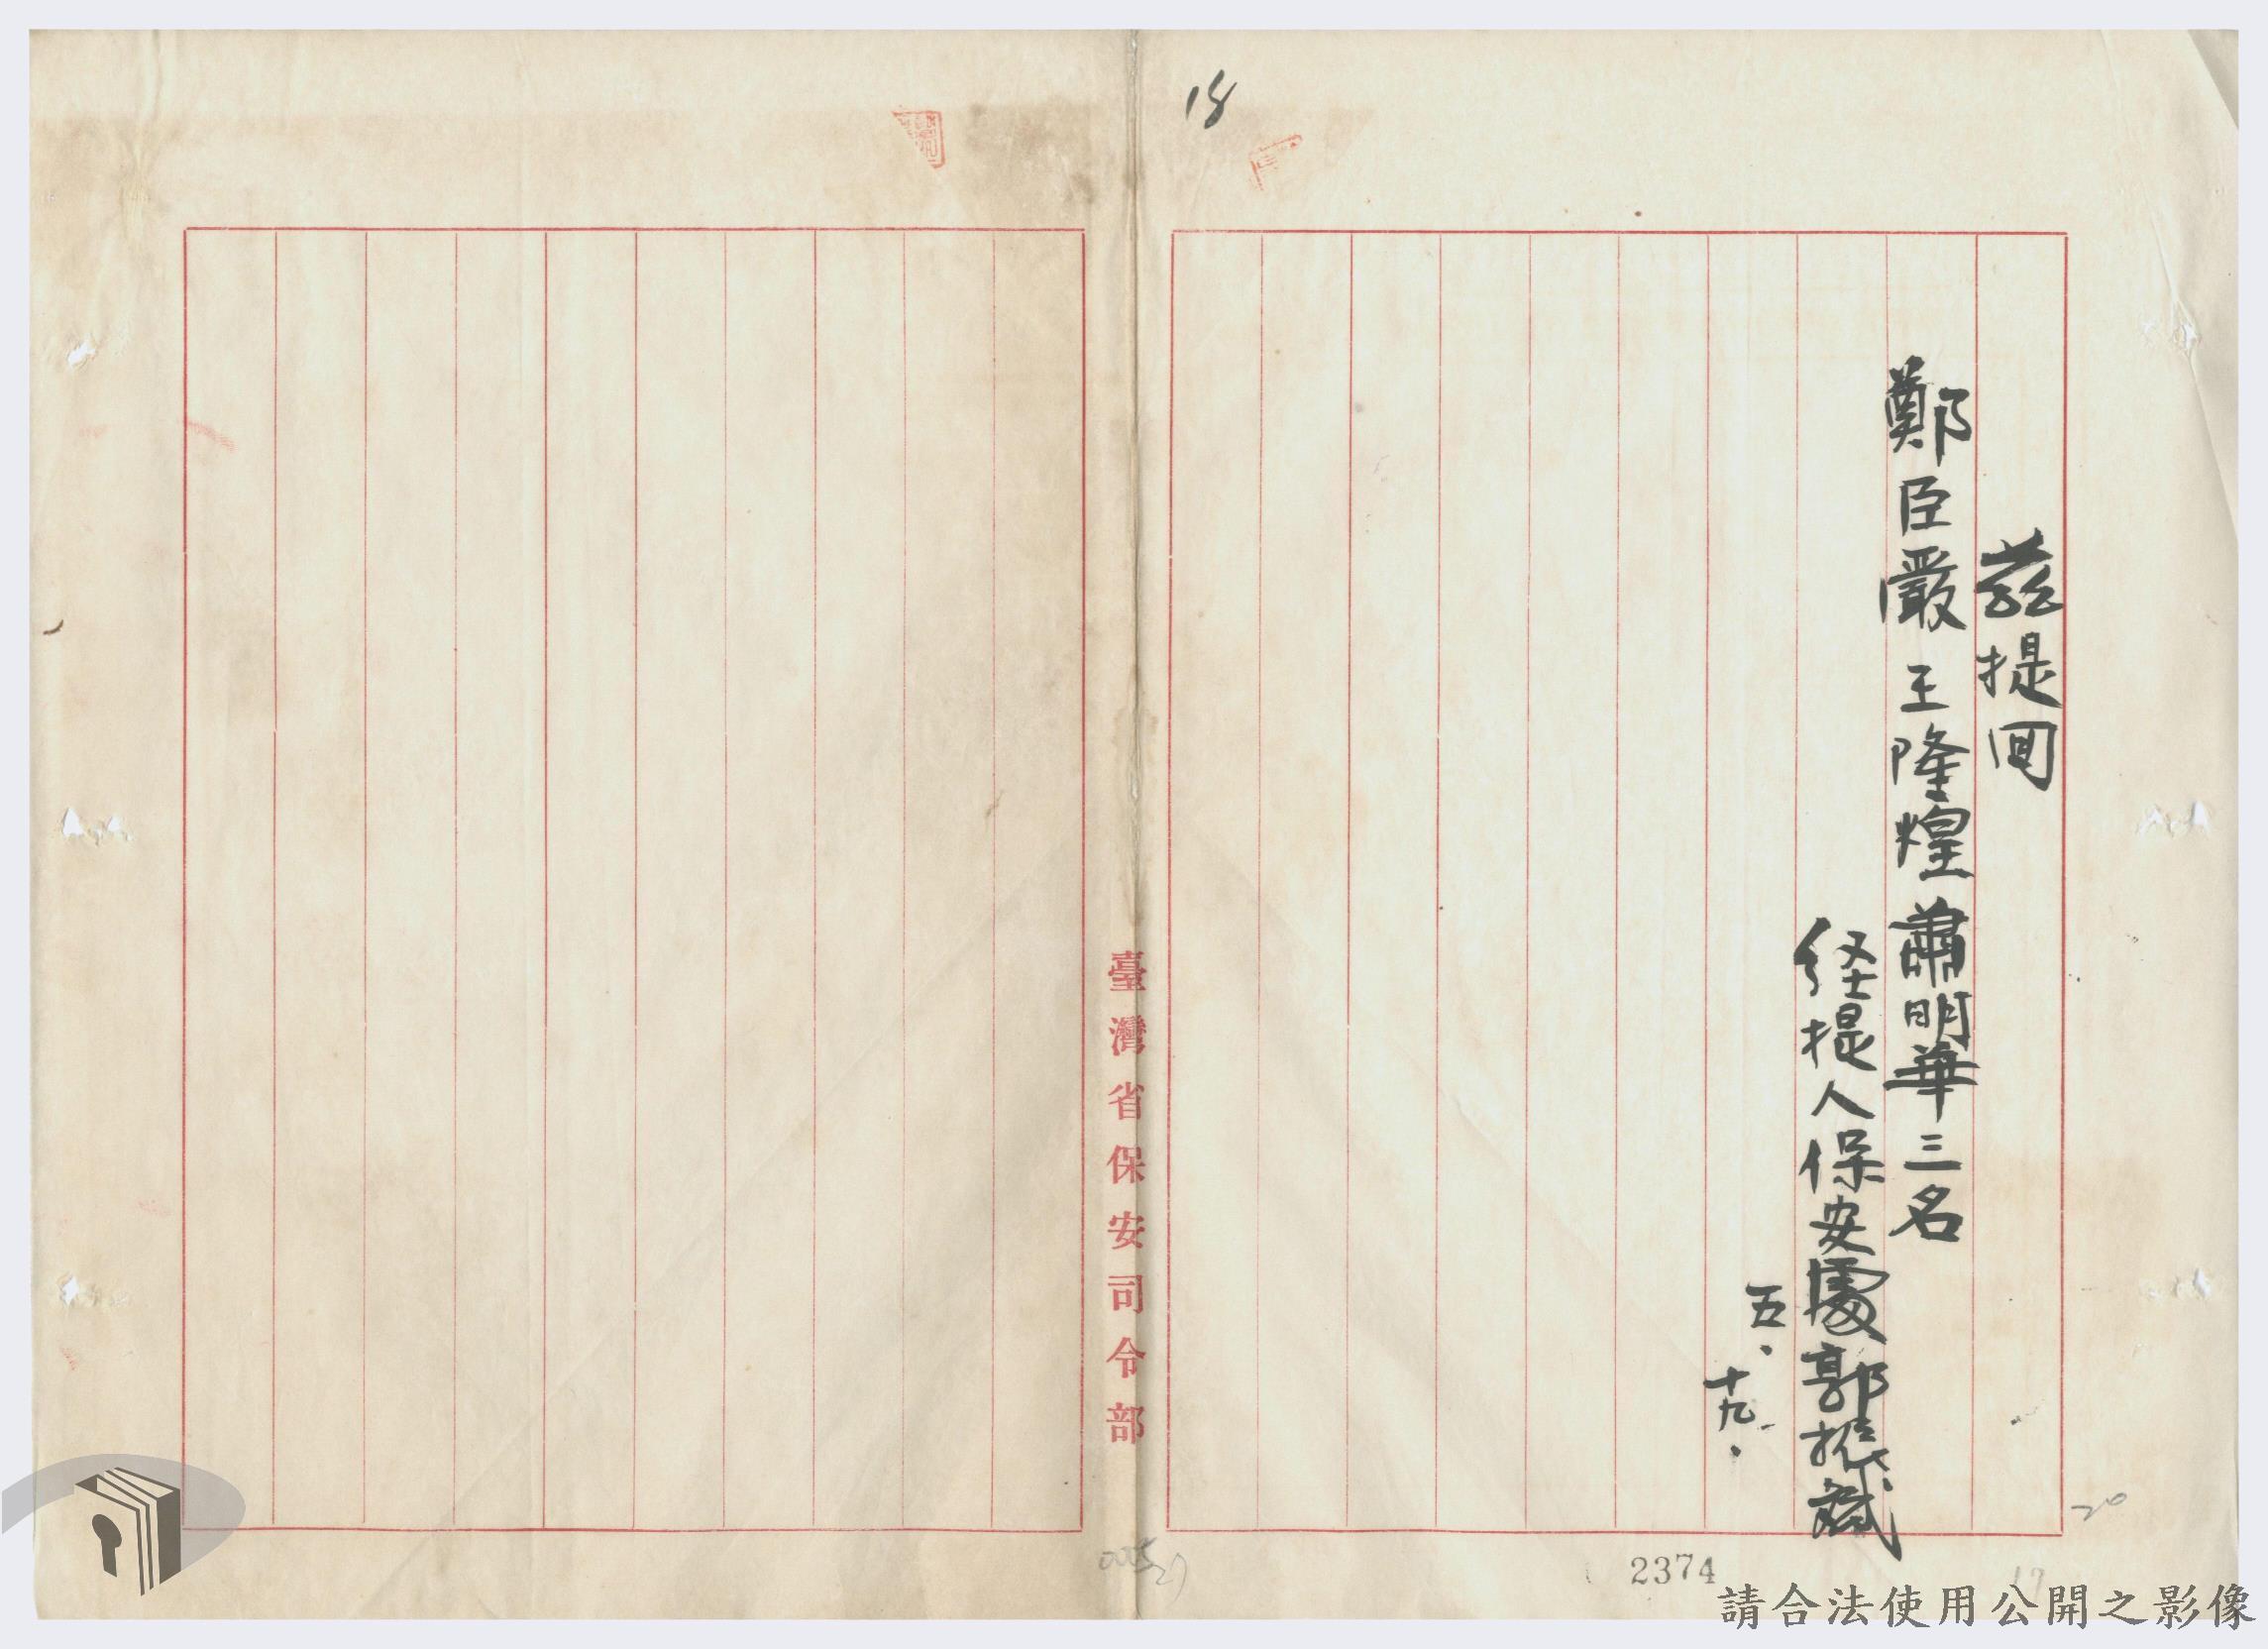 18
茲提回
鄭臣嚴王隆煌蕭明華三名
経提人保安處郭振斌
五.十九.
臺灣省保安司令部
2374
20
17
請合法使用公開之影像